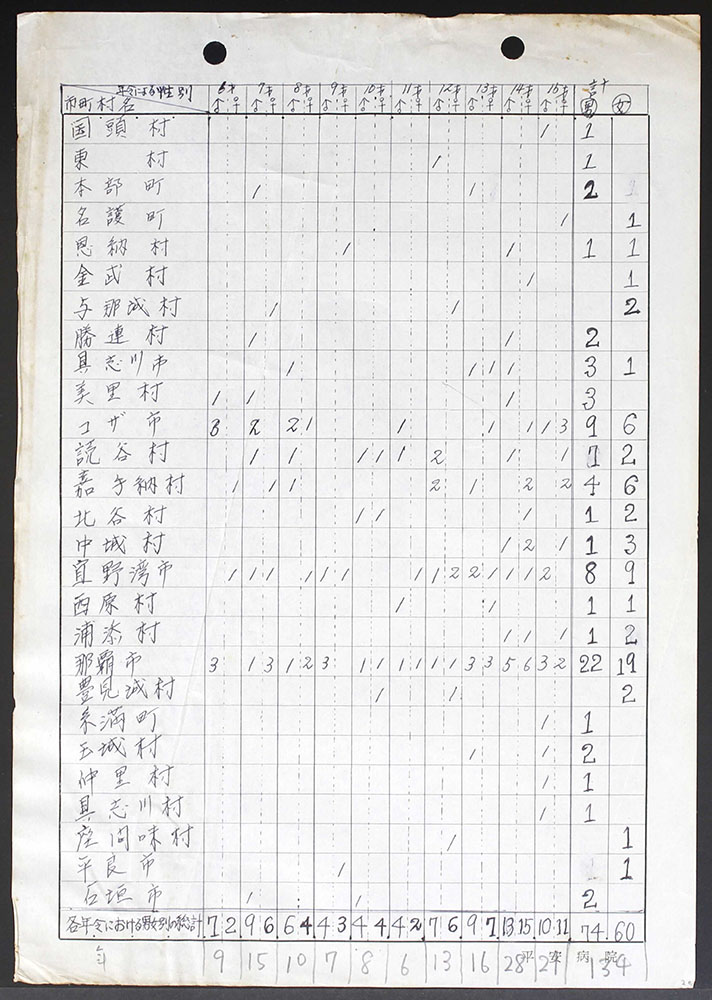 年令による性別 6才 7才 8才 9才 10才 11才 12才 13才 14才 15才 計
市町村名 ♂ ♀ ♂ ♀ ♂ ♀ ♂ ♀ ♂ ♀ ♂ ♀ ♂ ♀ ♂ ♀ ♂ ♀ ♂ ♀ 男 女
国頭村 1 1
東村 1 1
本部町 1 1 2
名護町 1 1
恩納村 1 1 1 1
金武村 1 1
与那城村 1 1 2
勝連村 1 1 2
具志川市 1 1 1 1 3 1
美里村 1 1 1 3
コザ市 3 2 2 1 1 1 1 1 3 9 6
読谷村 1 1 1 1 1 2 1 1 7 2
嘉手納村 1 1 1 2 1 2 2 4 6
北谷村 1 1 1 1 2
中城村 1 2 1 1 3
宜野湾市 1 1 1 1 1 1 1 1 2 2 1 1 1 2 8 9
西原村 1 1 1 1
浦添村 1 1 1 1 2
那覇市 3 1 3 1 2 3 1 1 1 1 1 1 3 3 5 6 3 2 22 19
豊見城村 1 1 2
糸満町 1 1
玉城村 1 1 2
仲里村 1 1
具志川村 1 1
座間味村 1 1
平良市 1 1
石垣市 1 1 2
各年令における男女別の総計 7 2 9 6 6 4 4 3 4 4 4 2 7 6 9 7 13 15 10 11 74 60
9 15 10 7 8 6 13 16 28 21 134
平安病院